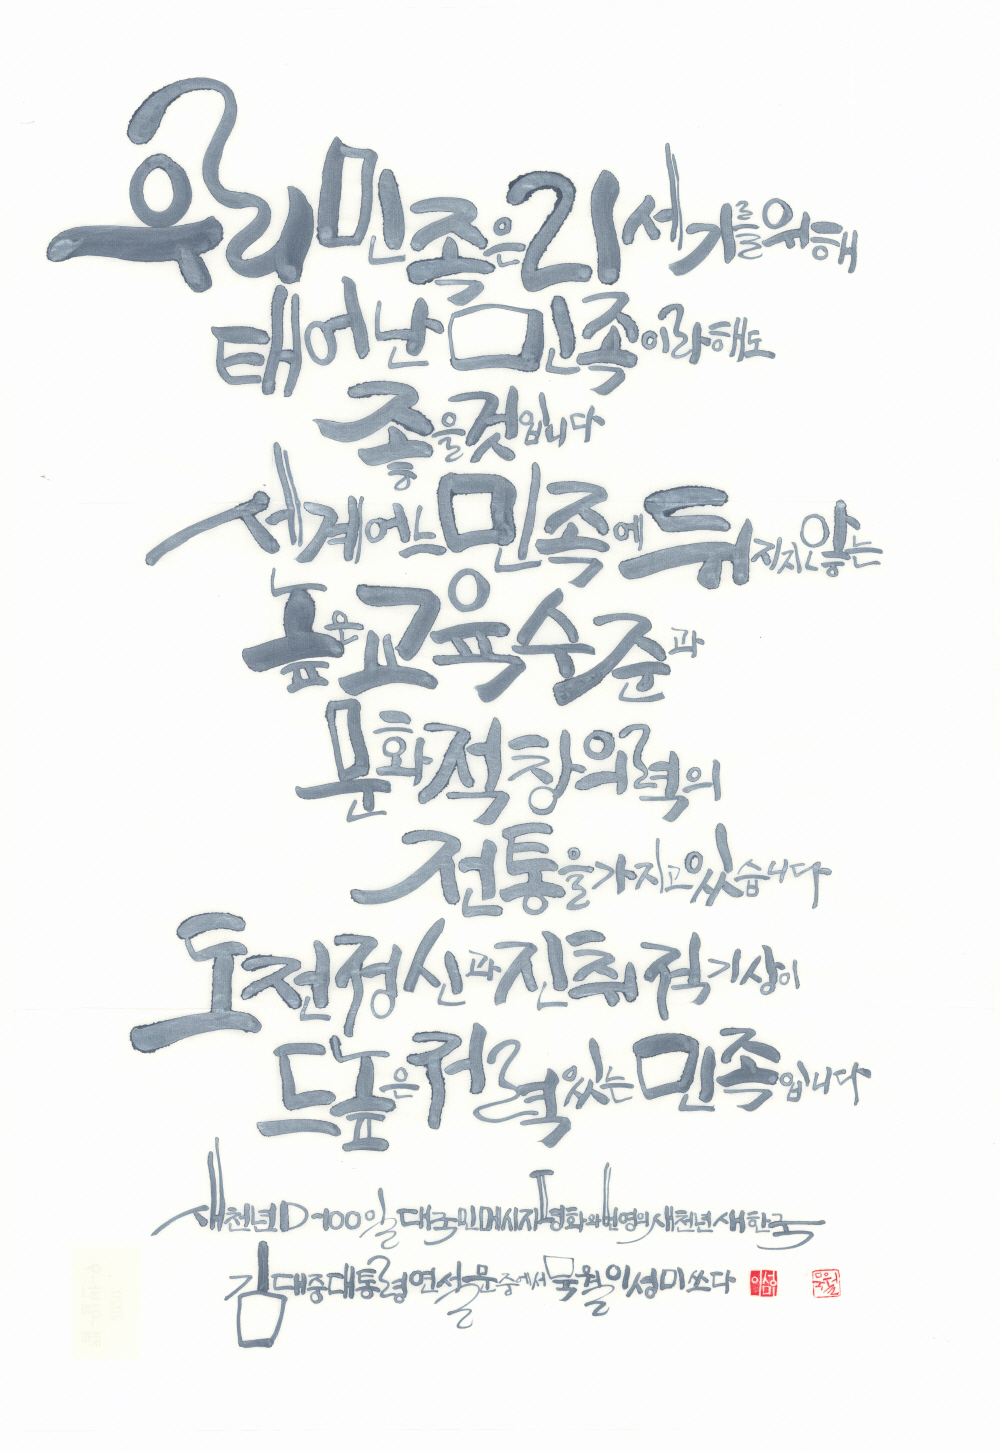 우리 민족은 21세기를 위해
태어난 민족이라해도
좋을 것입니다
세계 어느 민족에 뒤지지 않는
높은 교육수준과
문화적 창의력의
전통을 가지고 있습니다
도전정신과 진취적 기상이
드높은 저력있는 민족입니다
새천년 D-100일 대국민 메시지 평화와 번영의 새천년 새한국
김대중대통령 연설문 중에서 묵월 이성미 쓰다
이성미 묵월